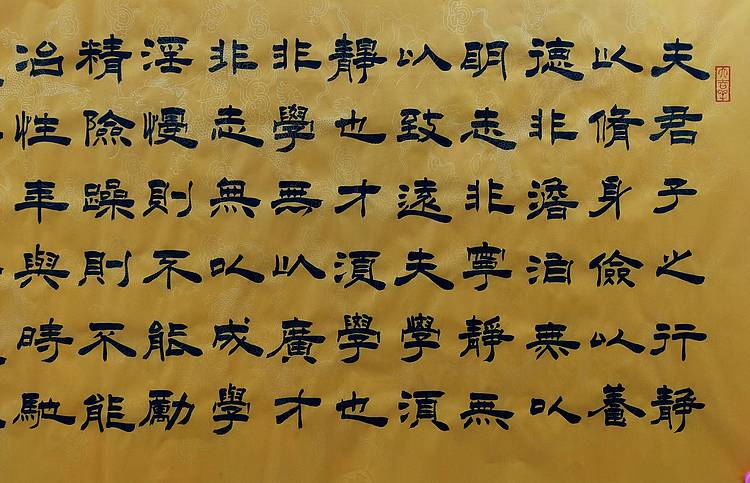 夫君子之行静
以脩身儉以養
德非澹泊無以
明志非寧靜無
以致遠夫學須
靜也才須學也
非學無以廣才
非志無以成學
淫慢則不能勵
精險躁則不能
治性年與時馳